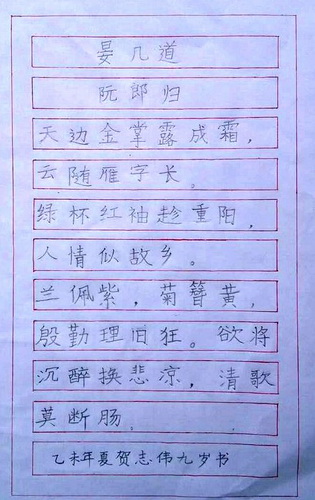 晏几道
阮郎归
天边金掌露成霜，
云随雁字长。
绿杯红袖趁重阳，
人情似故乡。
兰佩紫，菊簪黄，
殷勤理旧狂。欲将
沉醉换悲凉，清歌
莫断肠，
乙未年夏贺志伟九岁书